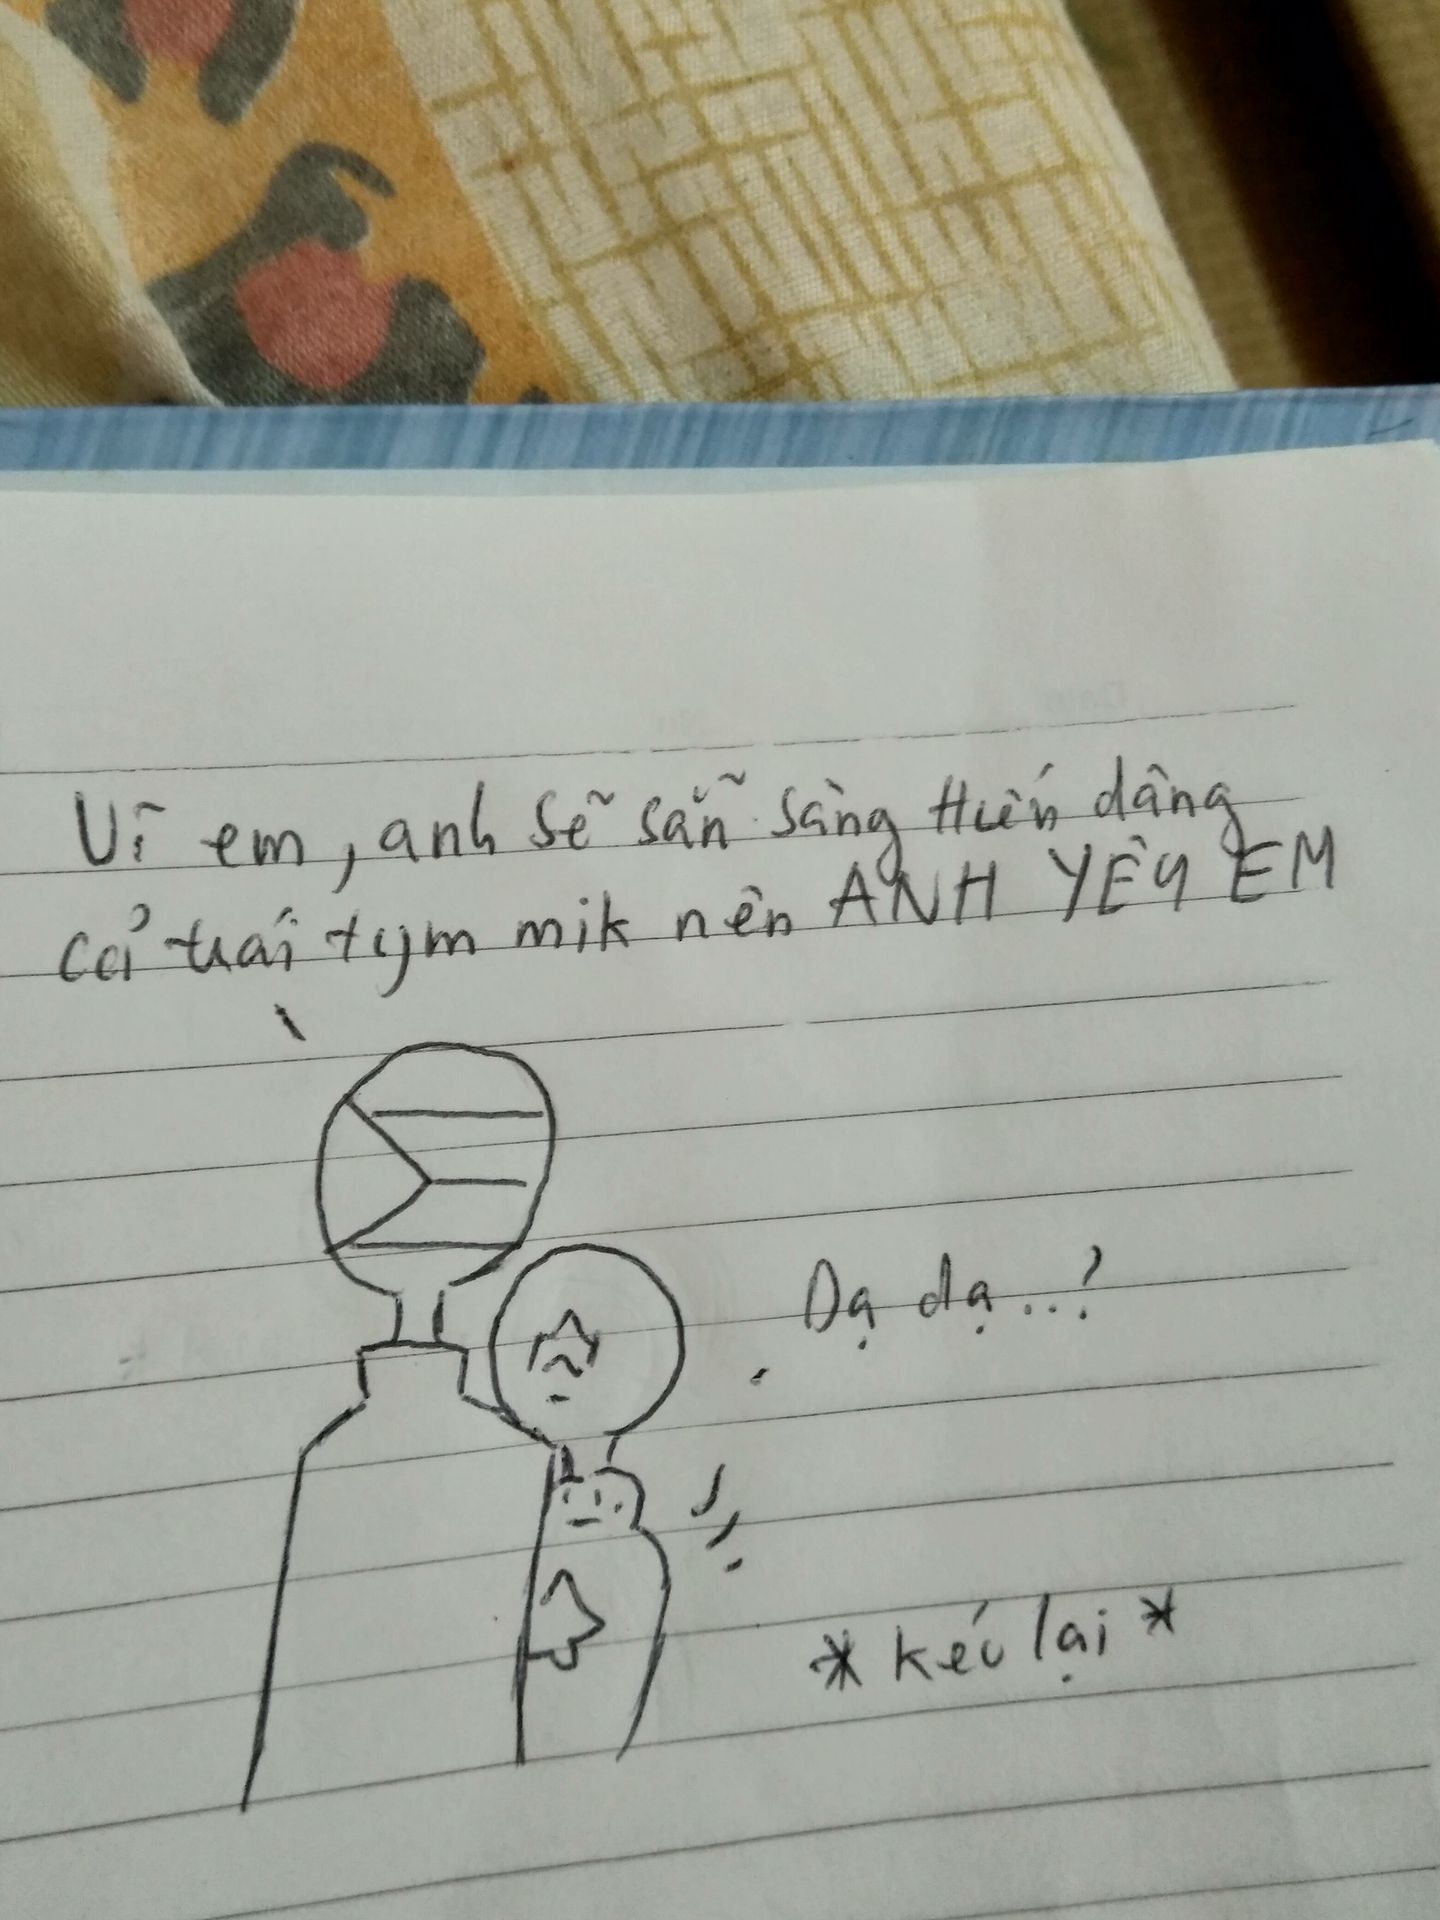 Vì em, anh sẽ sẵn sàng Hiến dâng
cả trái tym mik nên ANH YÊU EM
Dạ dạ...?
*kéo lại*